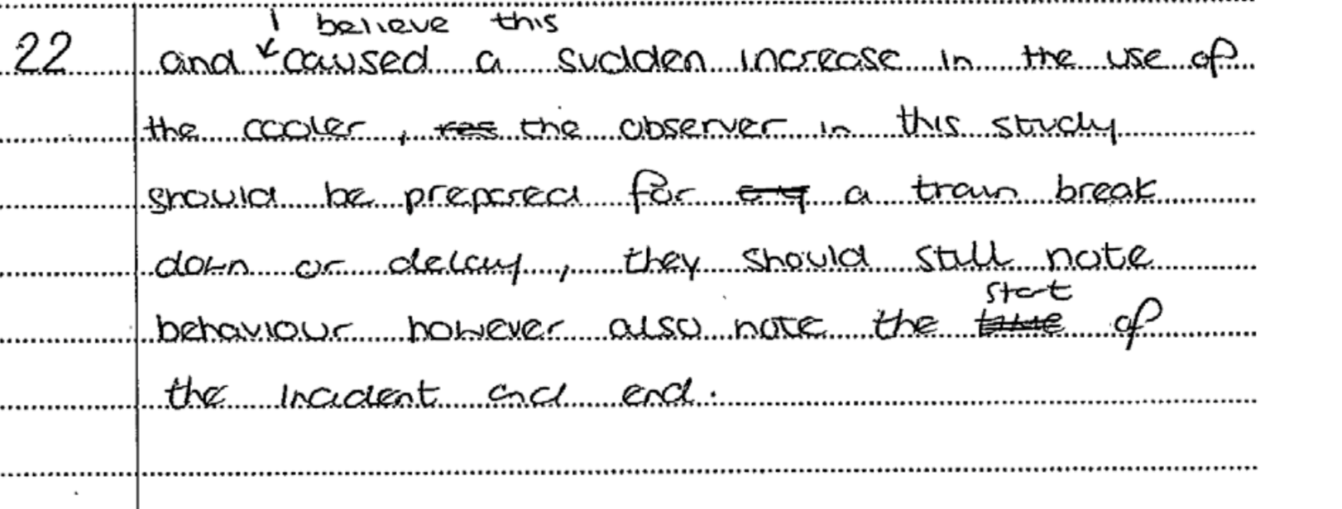 I believe this
22 and caused a sudden increase in the use of
the cooler, the observer in this study
should be prepared for a train break
down or delay, they should still note
behaviour however also note the start of
the incident and end.